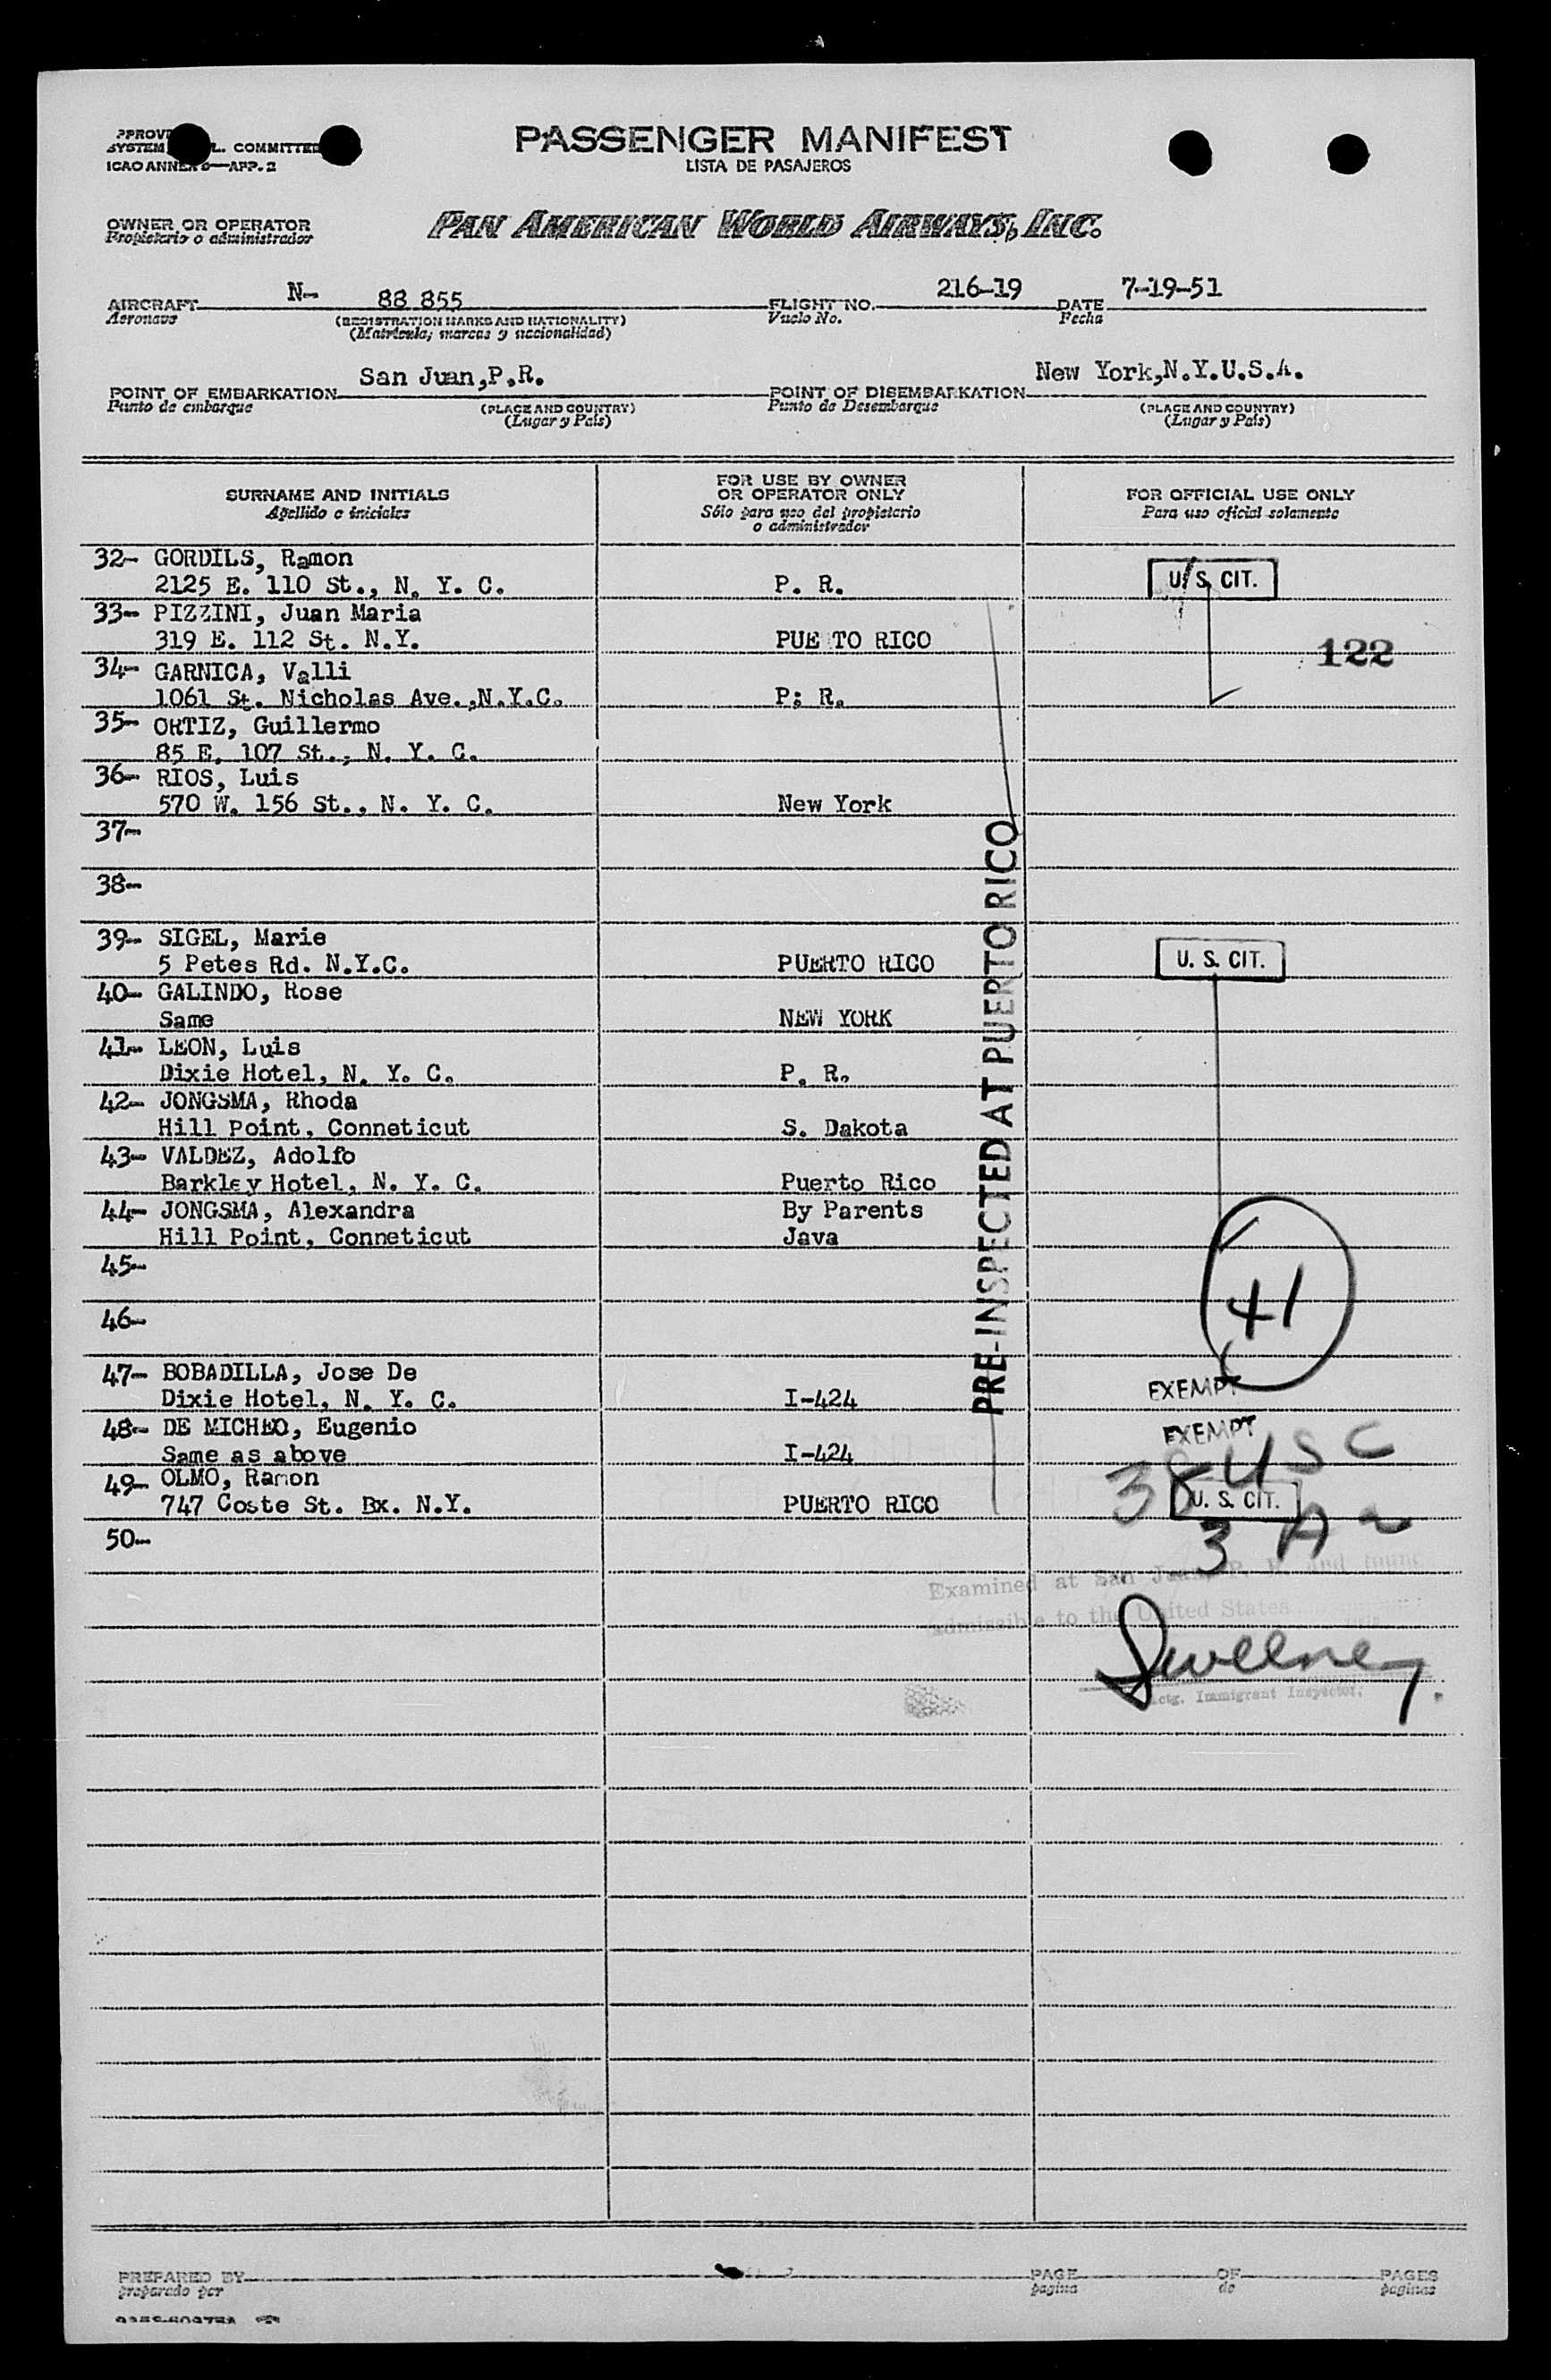 PASSENGER MANIFEST
LISTA DE PASAJEROS
COMMITTEE
ICAO ANNEX 9—APP. 2
OWNER OR OPERATOR
Propietario o administrador
PAN AMERICAN WORLD AIRWAYS, INC.
AIRCRAFT N- 88 855 FLIGHT NO. 216-19 DATE 7-19-51
Aeronave (REGISTRATION MARKS AND NATIONALITY) Vuelo No. Fecha
(Matrícula, marcas y nacionalidad)
POINT OF EMBARKATION San Juan,P.R. POINT OF DISEMBARKATION New York,N.Y.U.S.A.
Punto de embarque (PLACE AND COUNTRY) Punto de Desembarque (PLACE AND COUNTRY)
(Lugar y País) (Lugar y País)
SURNAME AND INITIALS
Apellido e iniciales
FOR USE BY OWNER
OR OPERATOR ONLY
Sólo para uso del propietario
o administrador
FOR OFFICIAL USE ONLY
Para uso oficial solamente
32- GORDILS, Ramon
2125 E. 110 St., N. Y. C. P. R. U. S. CIT.
33- PIZZINI, Juan Maria
319 E. 112 St. N.Y. PUE TO RICO 122
34- GARNICA, Valli
1061 St. Nicholas Ave.,N.Y.C. P: R.
35- ORTIZ, Guillermo
85 E. 107 St., N. Y. C.
36- RIOS, Luis
570 W. 156 St., N. Y. C. New York
37-
38-
39- SIGEL, Marie
5 Petes Rd. N.Y.C. PUERTO RICO U. S. CIT.
40- GALINDO, Rose
Same NEW YORK
41- LEON, Luis
Dixie Hotel, N. Y. C. P. R.
42- JONGSMA, Rhoda
Hill Point, Conneticut S. Dakota
43- VALDEZ, Adolfo
Barkley Hotel, N. Y. C. Puerto Rico
44- JONGSMA, Alexandra By Parents
Hill Point, Conneticut Java
45-
41
46-
47- BOBADILLA, Jose De
Dixie Hotel, N. Y. C. I-424 EXEMPT
48- DE MICHEO, Eugenio EXEMPT
Same as above I-424 38 USC
49- OLMO, Ramon
747 Coste St. Bx. N.Y. PUERTO RICO U. S. CIT.
50- 3 A
PRE-INSPECTED AT PUERTO RICO
Examined at San Juan, P. R. and found
Admissible to the United States
Sweeney
Actg. Immigrant Inspector.
PREPARED BY PAGE OF PAGES
preparado por pagina de paginas